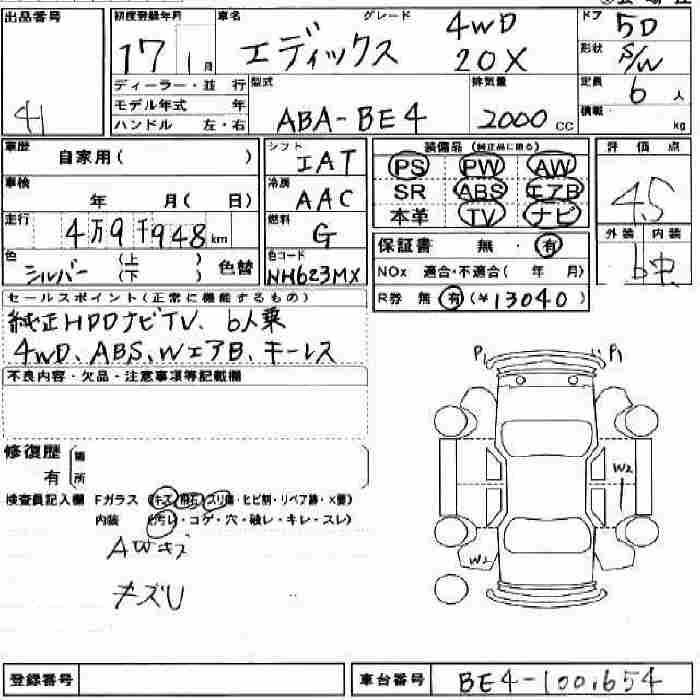 出品番号 初度登録年月 車名 グレード ドア
エディックス 4WD 20X 5D
17 1月 形状 S/W
ディーラー・並行 型式 排気量 定員 6人
モデル年式 年 ABA-BE4 2000cc 積載 kg
ハンドル 左・右
41
車歴 自家用( ) シフト IAT 装備品 (純正品に限る) 評価点
PS PW AW
車検 年 月( 日) 冷房 AAC SR ABS エアB 4.5
走行 4万9千948km 燃料 G 本革 TV ナビ
外装 内装
色 シルバー (上) (下) 色替 色コード NH623MX 保証書 無・有 b 中
NOx 適合・不適合( 年 月)
セールスポイント(正常に機能するもの) R券 無 有 (¥13040)
純正HDDナビTV、6人乗
4WD、ABS、WエアB、キーレス
P1 P1
不良内容・欠品・注意事項等記載欄
修復歴 有 箇所
W2
検査員記入欄 Fガラス (キズ・飛石・スリ傷・ヒビ割・リペア跡・X要)
内装 (汚レ・コゲ・穴・破レ・キレ・スレ)
AWキズ W2
キズU
登録番号 車台番号 BE4-1001654